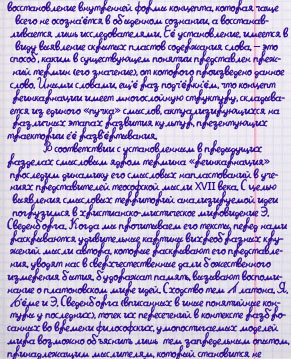 восстановление внутренней формы концепта, которая чаще
всего не осознаётся в обыденном сознании, а восстанав-
ливается лишь исследователями. Её установление, имеется в
виду выявление скрытых пластов содержания слова, – это
способ, каким в существующем понятии представлен преж-
ний термин (его значение), от которого произведено данное
слово. Иными словами, ещё раз подчеркнём, что концепт
реинкарнации имеет многослойную структуру, складыва-
ется из единого «пучка» смыслов, актуализирующихся на
различных этапах развития культур, презентующих
траектории её развёртывания.
В соответствии с установленным в предыдущих
разделах смысловым ядром термина «реинкарнация»
проследим динамику его смысловых напластований в уче-
ниях представителей теософской мысли XVII века. С целью
выявления смысловых территорий анализируемой идеи
погрузимся в христианско-мистическое мировидение Э.
Сведенборга. Когда мы прочитываем его тексты, перед нами
раскрываются удивительные картины вихреобразных кру-
жений мысли автора, которые раскрывают его представле-
ния, уводят нас в сверхъестественные дали божественного
измерения бытия, будоражат память, вызывают воспоми-
нание о платоновском мире идей. Сходство тем Платона, Я.
Бёме и Э. Сведенборга (вписанных в иные понятийные кон-
туры у последних), точек их пересечений в контексте разбро-
санных во времени философских, умопостигаемых моделей
мира возможно объяснить лишь тем запредельным опытом,
принадлежащим мыслителям, который становится не